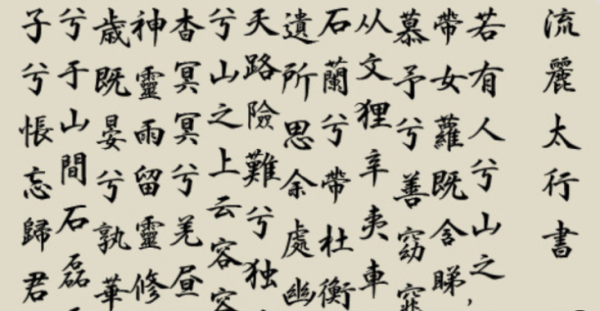 流麗太行書
若有人兮山之
帶女蘿既含睇
慕予兮善窈窕
从文狸辛夷車
石蘭兮帶杜衡
遺所思余處幽
天路險難兮独
兮山之上云容容
杳冥冥兮羌昼
神靈雨留靈修
歲既晏兮孰華
兮于山間石磊
子兮悵忘歸君